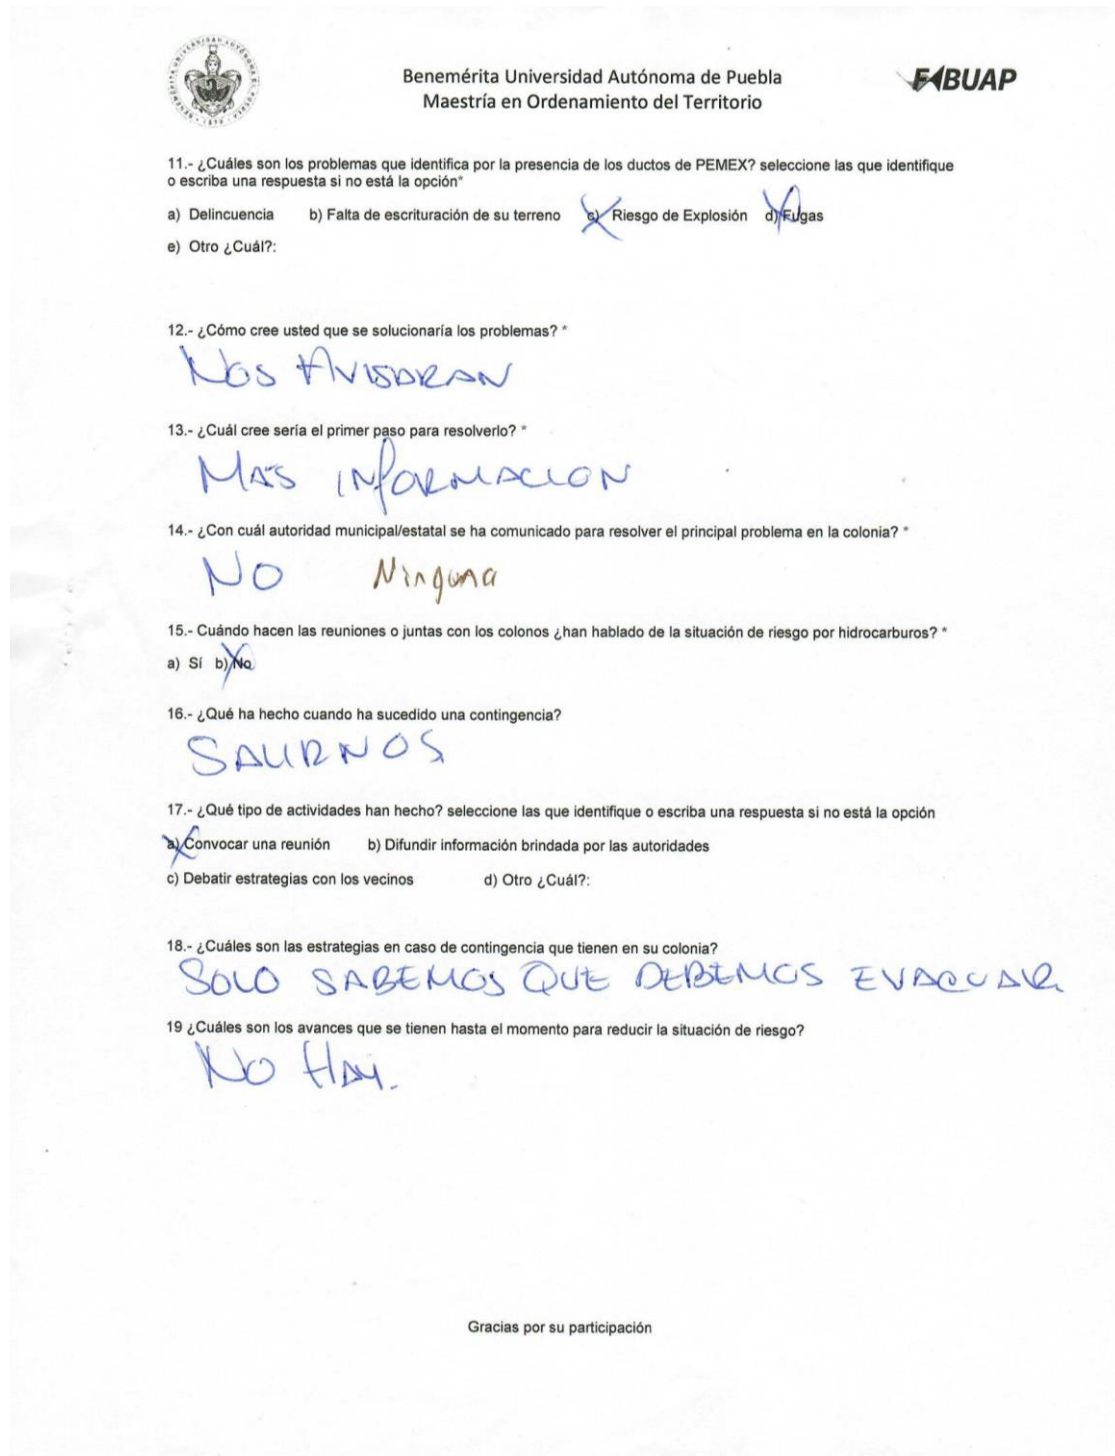 Benemérita Universidad Autónoma de Puebla
Maestría en Ordenamiento del Territorio
FABUAP
11.- ¿Cuáles son los problemas que identifica por la presencia de los ductos de PEMEX? seleccione las que identifique
o escriba una respuesta si no está la opción*
a) Delincuencia b) Falta de escrituración de su terreno c) Riesgo de Explosión d) Fugas
e) Otro ¿Cuál?:
12.- ¿Cómo cree usted que se solucionaría los problemas? *
NOS AVISARAN
13.- ¿Cuál cree sería el primer paso para resolverlo? *
MAS INFORMACION
14.- ¿Con cuál autoridad municipal/estatal se ha comunicado para resolver el principal problema en la colonia? *
NO Ninguna
15.- Cuándo hacen las reuniones o juntas con los colonos ¿han hablado de la situación de riesgo por hidrocarburos? *
a) Sí b) No
16.- ¿Qué ha hecho cuando ha sucedido una contingencia?
SALIRNOS
17.- ¿Qué tipo de actividades han hecho? seleccione las que identifique o escriba una respuesta si no está la opción
a) Convocar una reunión b) Difundir información brindada por las autoridades
c) Debatir estrategias con los vecinos d) Otro ¿Cuál?:
18.- ¿Cuáles son las estrategias en caso de contingencia que tienen en su colonia?
SOLO SABEMOS QUE DEBEMOS EVACUAR
19 ¿Cuáles son los avances que se tienen hasta el momento para reducir la situación de riesgo?
NO HAY.
Gracias por su participación